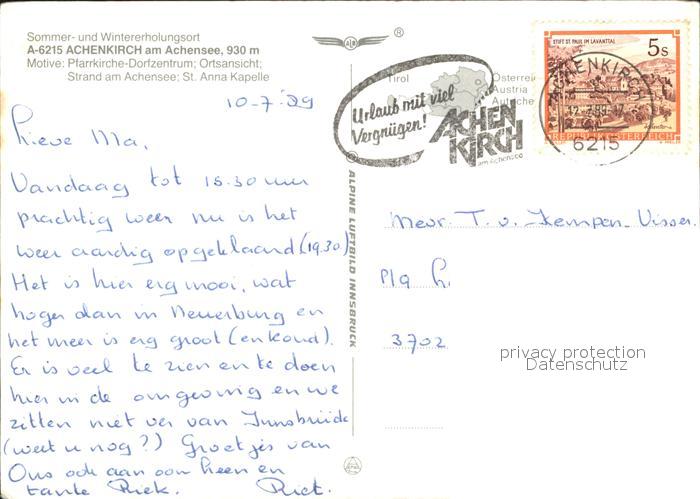 Sommer- und Wintererholungsort
A-6215 ACHENKIRCH am Achensee, 930 m
Motive: Pfarrkirche-Dorfzentrum; Ortsansicht;
Strand am Achensee; St. Anna Kapelle
®
Tirol
Österrei
Austria
Urlaub mit viel
Vergnügen!
ACHEN
KIRCH
am Achensee
STIFT ST. PAUL IM LAVANTTAL
5s
REPUBLIK ÖSTERREICH
ACHENKIRCH
6215
10-7-'89
Lieve Ma,
Vandaag tot 15.30 uur
prachtig weer nu is het
weer aardig opgeklaard (19.30)
Het is hier erg mooi, wat
hoger dan in Neuerburg en
het meer is erg groot (en koud).
Er is veel te zien en te doen
hier in de omgeving en we
zitten niet ver van Innsbrück
(weet u nog?) Groetjes van
Ons ook aan oom heen en
tante Riek. Riet.
ALPINE LUFTBILD INNSBRUCK
Mevr. T. v. Kempen-Visser.
3702
privacy protection
Datenschutz